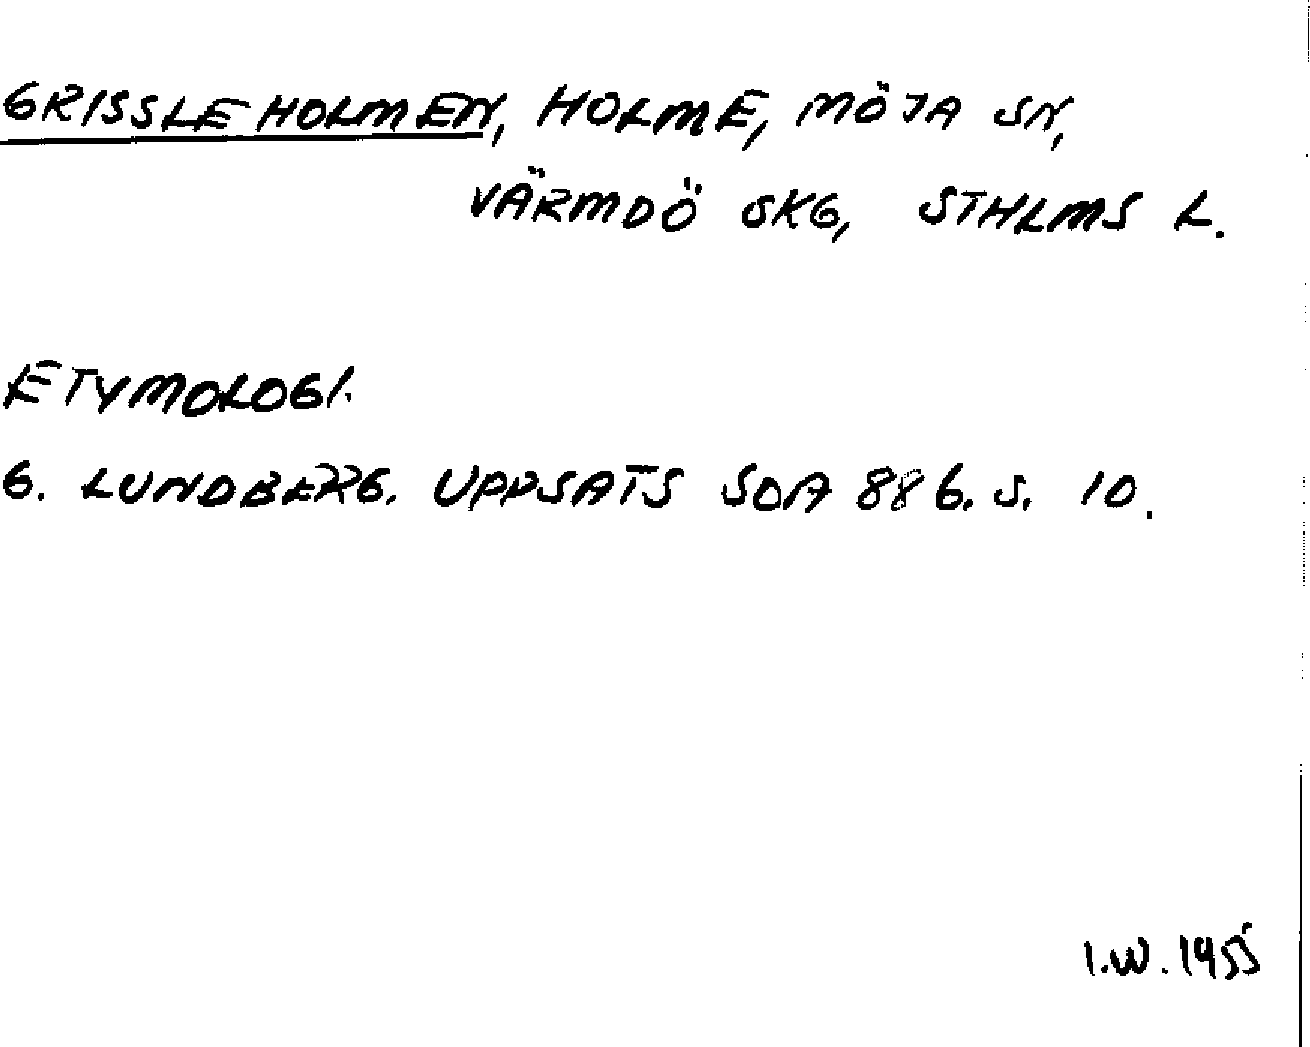 GRISSLEHOLMEN, HOLME, MÖJA SN,
VÄRMDÖ SKG, STHLMS L.
ETYMOLOGI.
G. LUNDBERG. UPPSATS SOA 886. S. 10.
I.W. 1955